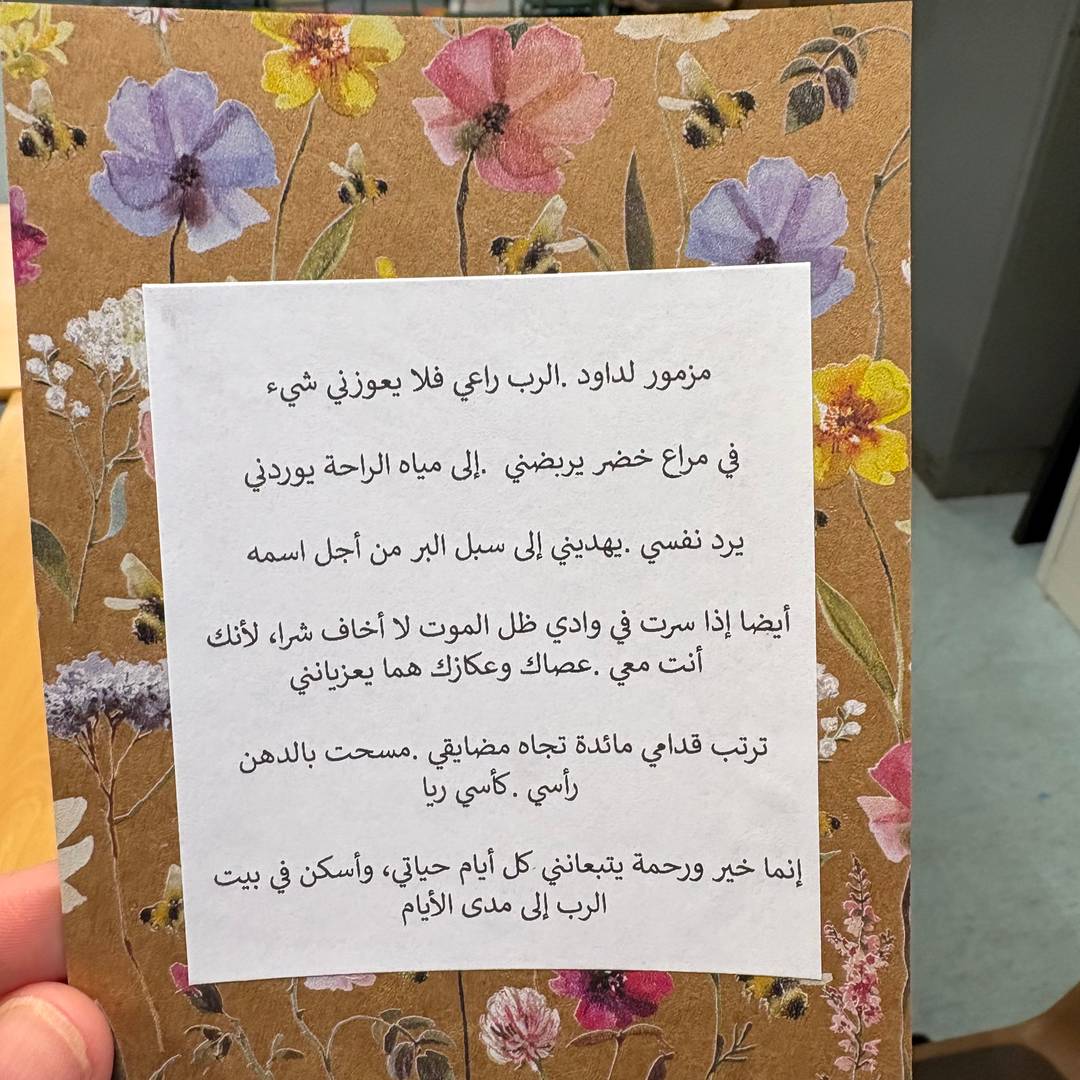 مزمور لداود .الرب راعي فلا يعوزني شيء
في مراع خضر يربضني .إلى مياه الراحة يوردني
يرد نفسي .يهديني إلى سبل البر من أجل اسمه
أيضا إذا سرت في وادي ظل الموت لا أخاف شرا، لأنك
أنت معي .عصاك وعكازك هما يعزيانني
ترتب قدامي مائدة تجاه مضايقي .مسحت بالدهن
رأسي .كأسي ريا
إنما خير ورحمة يتبعانني كل أيام حياتي، وأسكن في بيت
الرب إلى مدى الأيام